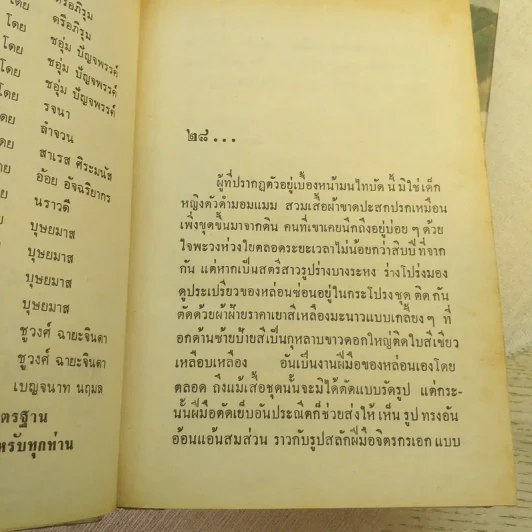 โดย ตรีอภิรุม
โดย ตรีอภิรุม
โดย ชอุ่ม ปัญจพรรค์
โดย ชอุ่ม ปัญจพรรค์
โดย ชอุ่ม ปัญจพรรค์
โดย รจนา
ลำจวน
สาเรส ศิระมนัส
อ้อย อัจฉริยากร
นราวดี
บุษยมาส
บุษยมาส
บุษยมาส
บุษยมาส
ชูวงศ์ ฉายะจินดา
ชูวงศ์ ฉายะจินดา
เบญจนาท นฤมล
ตรฐาน
หรับทุกท่าน
๒๘...
ผู้ที่ปรากฏตัวอยู่เบื้องหน้ามนไทบัดนี้ มิใช่เด็ก
หญิงตัวดำมอมแมม สวมเสื้อผ้าขาดปะสกปรกเหมือน
เพิ่งขุดขึ้นมาจากดิน คนที่เขาเคยนึกถึงอยู่บ่อย ๆ ด้วย
ใจพะวงห่วงใยตลอดระยะเวลาไม่น้อยกว่าสิบปีที่จาก
กัน แต่หากเป็นสตรีสาวรูปร่างบางระหง ร่างโปร่งมอง
ดูประเปรียวของหล่อนซ่อนอยู่ในกระโปรงชุด ติด กัน
ตัดด้วยผ้าฝ้ายราคาเยาสีเหลืองมะนาวแบบเกลี้ยง ๆ ที่
อกด้านซ้ายป้ายสีเป็นกุหลาบขาวดอกใหญ่ติดใบสีเขียว
เหลือบเหลือง อันเป็นงานฝีมือของหล่อนเองโดย
ตลอด ถึงแม้เสื้อชุดนั้นจะมิได้ตัดแบบรัดรูป แต่กระ-
นั้นฝีมือตัดเย็บอันประณีตก็ช่วยส่งให้ เห็น รูป ทรงอัน
อ้อนแอ้นสมส่วน ราวกับรูปสลักฝีมือจิตรกรเอก แบบ